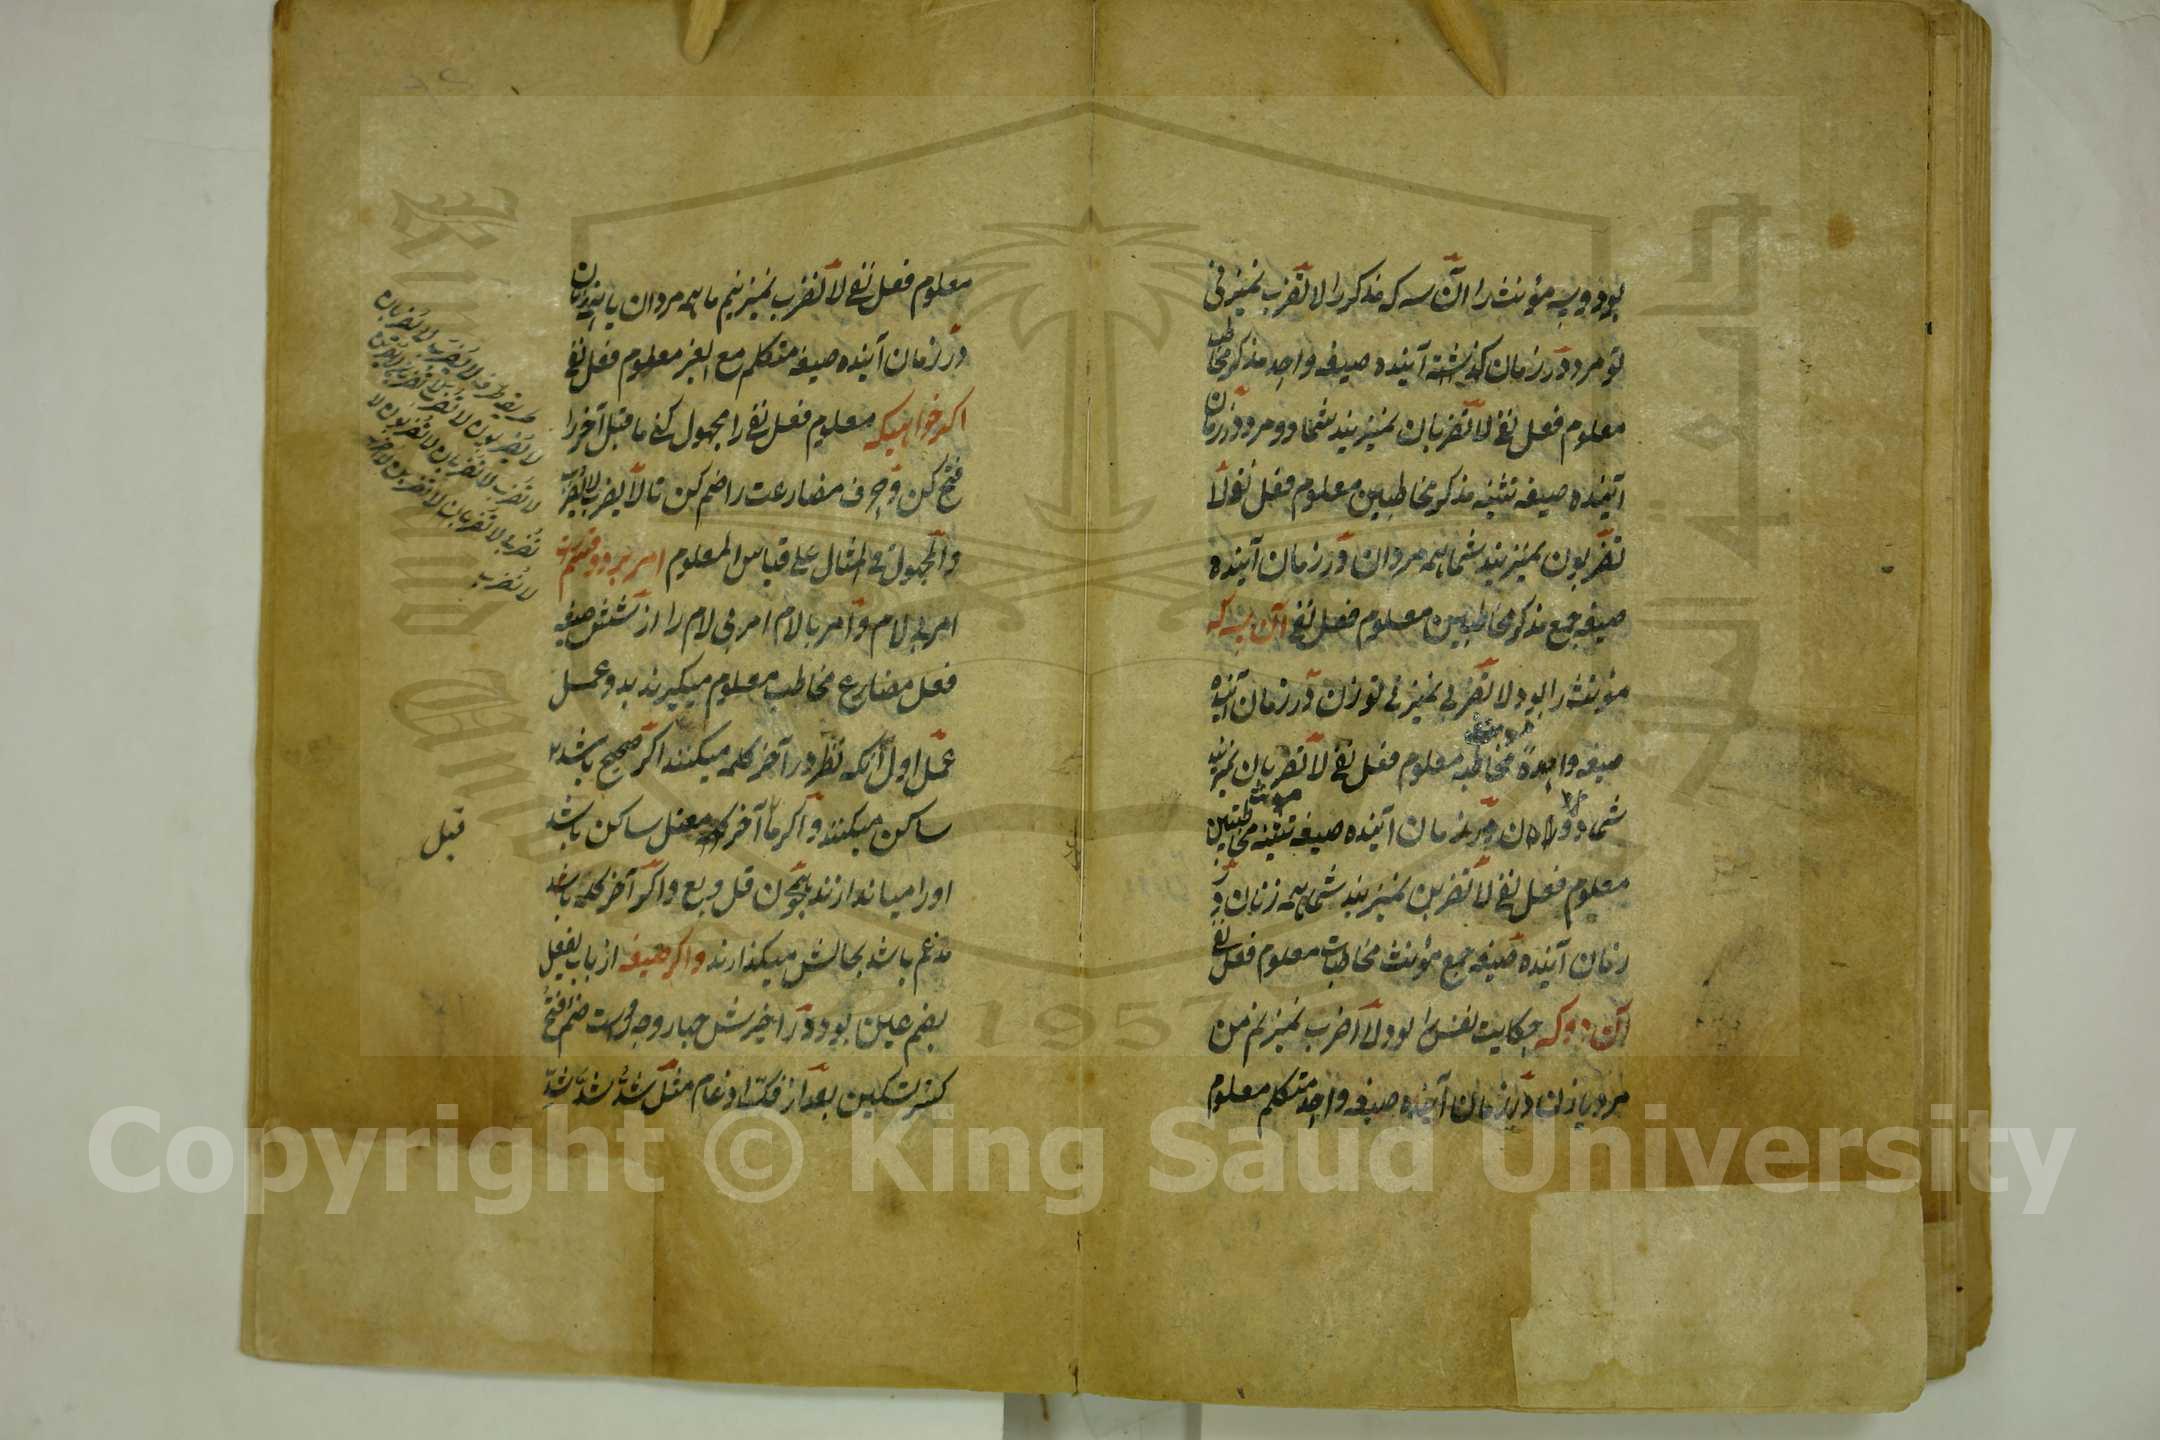 بود و سه مؤنث را آن سه که مذکر را لا تضرب نمیزنی
تو مرد در زمان آینده صیغه واحد مذکر مخاطب
معلوم فعل نفی لا تضربان نمیزنید شما دو مرد در زمان
آینده صیغه تثنیه مذکر مخاطبین معلوم فعل نفی لا
تضربون نمیزنید شما همه مردان در زمان آینده
صیغه جمع مذکر مخاطبین معلوم فعل نفی آن سه که
مؤنث را بود لا تضربی نمیزنی تو زن در زمان آینده
صیغه واحدة مخاطبه معلوم فعل نفی لا تضربان نمیزنید
شما دو زن در زمان آینده صیغه تثنیه مؤنث مخاطبتین
معلوم فعل نفی لا تضربن نمیزنید شما همه زنان در
زمان آینده صیغه جمع مؤنث مخاطبات معلوم فعل نفی
آن دو که حکایت نفس را بود لا اضرب نمیزنم من
مرد یا زن در زمان آینده صیغه واحد متکلم معلوم
معلوم فعل نفی لا نضرب نمیزنیم ما همه مردان یا همه زنان
در زمان آینده صیغه متکلم مع الغیر معلوم فعل نفی
اکر خواهیکه معلوم فعل نفی را مجهول کنی ما قبل آخر را
فتح کن و حرف مضارعت را ضم کن تا لا یضرب لا یضرب
والمجهول فی المثال علی قیاس المعلوم امر بر دو قسم است
امر بی لام و امر بالام امر بی لام را از شش صیغه
فعل مضارع مخاطب معلوم میکیرند بدو عمل
عمل اول آنکه نظر در آخر کلمه میکنند اکر صحیح باشد
ساکن میکنند و اکر آخر کلمه معتل ساکن باشد
او را میاندازند همچون قل و بع و اکر آخر کلمه باشد
مدغم باشد بحالش میکذارند و اکر صیغه از باب یفعل
بضم عین بود در اخیرش چهار وجه است ضم فتح
کسر تسکین بعد از فکّ ادغام مثل شدّ شدّ شدّ
طریقه طرف لا یضرب لا یضربان
لا یضربون لا تضرب لا تضربان
لا تضرب لا تضربان لا تضربون لا
تضربی لا تضربان لا تضربن لا اضرب
لا نضرب
قبل
1957
Copyright © King Saud University